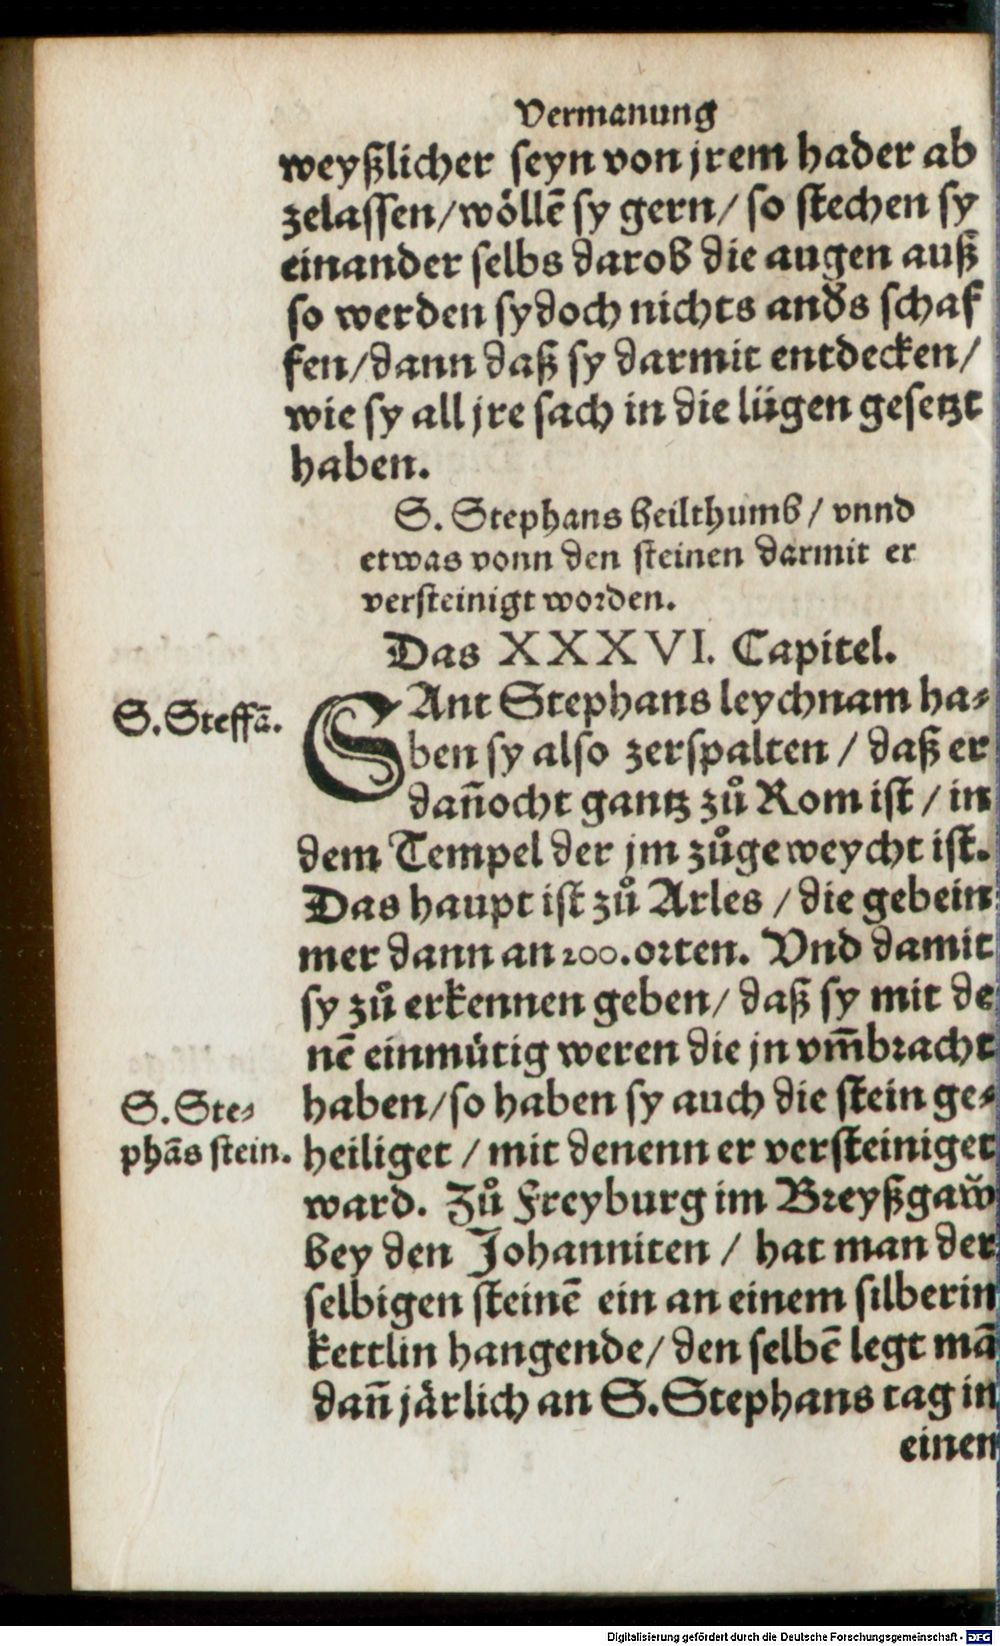 Vermanung
weyßlicher seyn von jrem hader ab
zelassen/wöllē sy gern/ so stechen sy
einander selbs darob die augen auß
so werden sy doch nichts anđs schaf
fen/dann daß sy darmit entdecken/
wie sy all jre sach in die lügen gesetzt
haben.
S. Stephans heilthumb/ vnnd
etwas vonn den steinen darmit er
versteinigt worden.
Das XXXVI. Capitel.
S.Steffā.
SAnt Stephans leychnam ha-
ben sy also zerspalten / daß er
dañocht gantz zů Rom ist / in
dem Tempel der jm zůgeweycht ist.
Das haupt ist zů Arles /die gebein
mer dann an 200.orten. Vnd damit
sy zů erkennen geben/ daß sy mit de
nē einmütig weren die jn vm̄bracht
S.Ste-
phās stein.
haben/so haben sy auch die stein ge-
heiliget / mit denenn er versteiniget
ward. Zů Freyburg im Breyßgaw̄
bey den Johanniten / hat man der
selbigen steinē ein an einem silberin
kettlin hangende/ den selbē legt mā
dañ järlich an S.Stephans tag in
einen
Digitalisierung gefördert durch die Deutsche Forschungsgemeinschaft - DFG